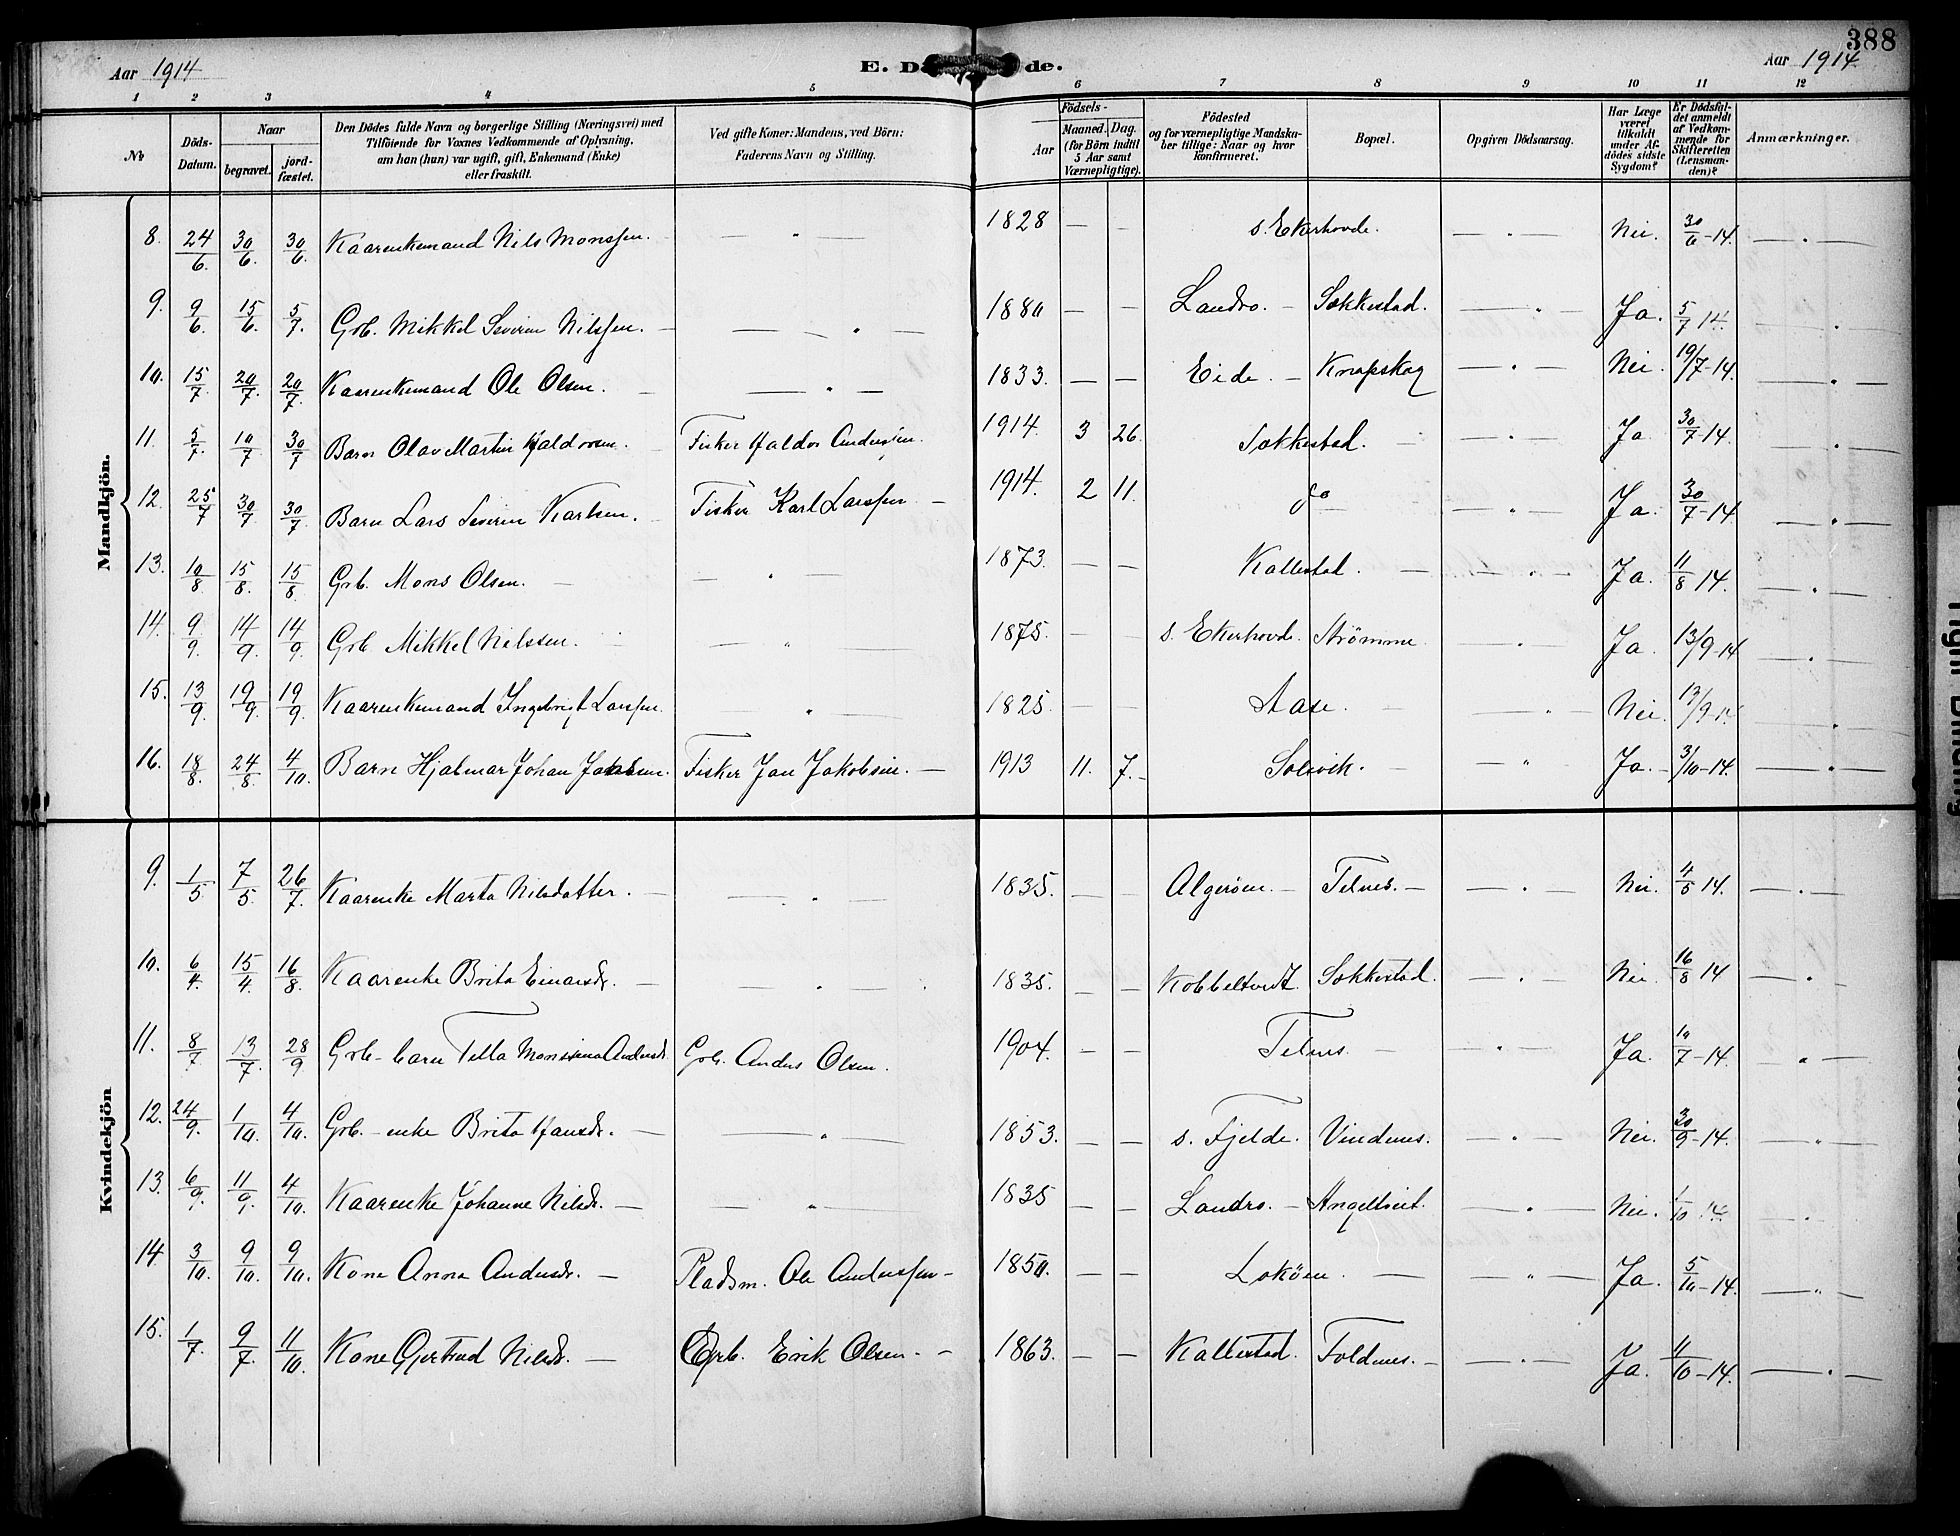 388
Aar 1914
E. Dö de.
Aar 1914
1 2 3 4 5 6 7 8 9 10 11 12
No
Döds-Datum.
Naar
begravet.
jord-fæstet.
Den Dödes fulde Navn og borgerlige Stilling (Næringsvei) med
Tilföiende for Voxnes Vedkommende af Oplysning,
om han (hun) var ugift, gift, Enkemand (Enke)
eller fraskilt.
Ved gifte Koner: Mandens, ved Börn:
Faderens Navn og Stilling.
Födsels-
Aar
Maaned. Dag.
(for Börn indtil
5 Aar samt
Værnepligtige).
Födested
og for værnepligtige Mandska-
ber tillige: Naar og hvor
konfirmeret.
Bopæl.
Opgiven Dödsaarsag.
Har Læge
været
tilkaldt
under Af-
dödes sidste
Sygdom?
Er Dödsfal-
det anmeldt
af Vedkom-
mende for
Skifteretten
(Lensman-
den)?
Anmærkninger.
Mandkjön.
8. 24/6. 30/6. 30/6. Kaarenkemand Nils Monssen. — " — 1828 — — s. Ekerhovde. — " — Nei. 30/6-14. — " —
9. 9/6. 15/6. 5/7. Grb. Mikkel Severin Nilssen. — — " — 1880 — — Landro. — Sokkestad. — " — Ja. 5/7 14. "
10. 15/7. 20/7. 20/7. Kaarenkemand Ole Olsen. — — " — 1833. — — Eide. — Knapskog — " — Nei 19/7-14. — " —
11. 5/7. 10/7 30/7 Barn Olav Martin Haldorsen. Fisker Haldor Anderssen. 1914. 3 26. Sokkestad. — " — Ja 30/7-14. — " —
12. 25/7 30/7 30/7 Barn Lars Severin Karlsen. Fisker Karl Larssen — 1914. 2 11. do — " — Ja. 30/7-14. — " —
13. 10/8. 15/8. 15/8 Grb. Mons Olsen. — — " — 1873. — — Kallestad. — — " — Ja. 11/8 14. — " —
14. 9/9. 14/9. 14/9. Grb Mikkel Nilssen. — " — 1875. — — s. Ekerhovde. Strømme — " — Ja. 13/9-14 — " —
15. 13/9. 19/9. 19/9. Kaarenkemand Ingebrigt Larssen. — " — 1825. — — Aase. — — " — Nei. 13/9-14 "
16. 18/8. 24/8. 4/10. Barn Hjalmar Johan Jansen. Fisker Jan Jakobsen. — 1913 11. 7. Solsvik. — — " Ja. — 3/10-14. — " —
Kvindekjön
9. 1/5 7/5. 26/7. Kaarenke Marta Nilsdatter. — — " — 1835. — — Algerøen. — Telnes. — — " — Nei. 4/5 14. — " —
10. 6/4. 15/4. 16/8. Kaarenke Brita Einarsdr. — — " — 1835. — — Kobbeltvedt. Sokkestad. — " — Nei. 16/8 14 — " —
11. 8/7 13/7. 28/9 Grb-barn Tella Monsina Andersdr. Grb. Anders Olsen. 1904. — — Telnes. — — " — Ja. 10/7-14. " —
12. 24/9. 1/10. 4/10. Grb.-enke Brita Hansdr. — — " — 1853. — — s. Fjelde. Vindenes. — " — Nei. 30/9-14. — "
13. 6/9. 11/9. 4/10. Kaarenke Johanne Nilsdr. — — " — 1835 — — Landro. — Angeltveit. — " — Nei. 1/10 14 "
14. 3/10. 9/10. 9/10. Kone Anna Andersdr. — Pladsm. Ole Anderssen — 1850. — — Lokøen. — — " — Ja. 5/10-14. — " —
15. 1/7. 9/7. 11/10. Kone Gjertrud Nilsdr. — Grb. Erik Olsen. — 1863. — — Kallestad. Foldnes. — — " — Ja. 11/10-14. — " —